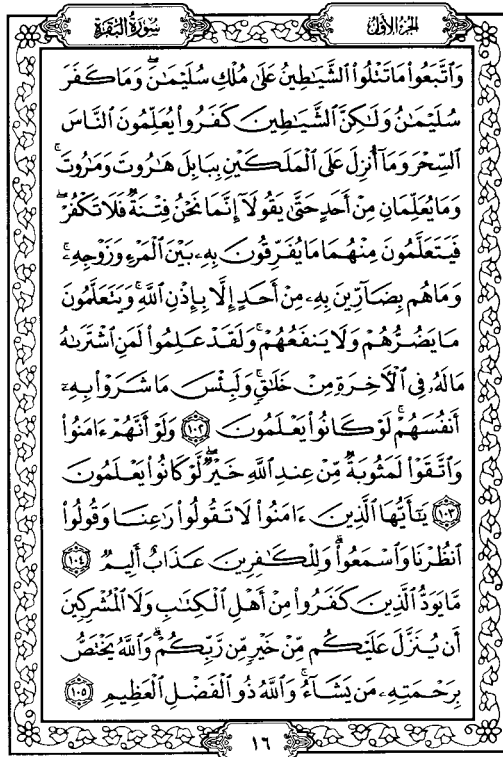 سُورَةُ الْبَقَرَةِ
الجُزْءُ الأَوَّلُ
وَٱتَّبَعُوا۟ مَا تَتْلُوا۟ ٱلشَّيَٰطِينُ عَلَىٰ مُلْكِ سُلَيْمَٰنَ ۖ وَمَا كَفَرَ
سُلَيْمَٰنُ وَلَٰكِنَّ ٱلشَّيَٰطِينَ كَفَرُوا۟ يُعَلِّمُونَ ٱلنَّاسَ
ٱلسِّحْرَ وَمَآ أُنزِلَ عَلَى ٱلْمَلَكَيْنِ بِبَابِلَ هَٰرُوتَ وَمَٰرُوتَ ۚ
وَمَا يُعَلِّمَانِ مِنْ أَحَدٍ حَتَّىٰ يَقُولَآ إِنَّمَا نَحْنُ فِتْنَةٌ فَلَا تَكْفُرْ ۖ
فَيَتَعَلَّمُونَ مِنْهُمَا مَا يُفَرِّقُونَ بِهِۦ بَيْنَ ٱلْمَرْءِ وَزَوْجِهِۦ ۚ
وَمَا هُم بِضَآرِّينَ بِهِۦ مِنْ أَحَدٍ إِلَّا بِإِذْنِ ٱللَّهِ ۚ وَيَتَعَلَّمُونَ
مَا يَضُرُّهُمْ وَلَا يَنفَعُهُمْ ۚ وَلَقَدْ عَلِمُوا۟ لَمَنِ ٱشْتَرَىٰهُ
مَا لَهُۥ فِى ٱلْءَاخِرَةِ مِنْ خَلَٰقٍ ۚ وَلَبِئْسَ مَا شَرَوْا۟ بِهِۦٓ
أَنفُسَهُمْ ۚ لَوْ كَانُوا۟ يَعْلَمُونَ ١٠٢ وَلَوْ أَنَّهُمْ ءَامَنُوا۟
وَٱتَّقَوْا۟ لَمَثُوبَةٌ مِّنْ عِندِ ٱللَّهِ خَيْرٌ ۖ لَّوْ كَانُوا۟ يَعْلَمُونَ
١٠٣ يَٰٓأَيُّهَا ٱلَّذِينَ ءَامَنُوا۟ لَا تَقُولُوا۟ رَٰعِنَا وَقُولُوا۟
ٱنظُرْنَا وَٱسْمَعُوا۟ ۗ وَلِلْكَٰفِرِينَ عَذَابٌ أَلِيمٌ ١٠٤
مَّا يَوَدُّ ٱلَّذِينَ كَفَرُوا۟ مِنْ أَهْلِ ٱلْكِتَٰبِ وَلَا ٱلْمُشْرِكِينَ
أَن يُنَزَّلَ عَلَيْكُم مِّنْ خَيْرٍ مِّن رَّبِّكُمْ ۗ وَٱللَّهُ يَخْتَصُّ
بِرَحْمَتِهِۦ مَن يَشَآءُ ۚ وَٱللَّهُ ذُو ٱلْفَضْلِ ٱلْعَظِيمِ ١٠٥
١٦